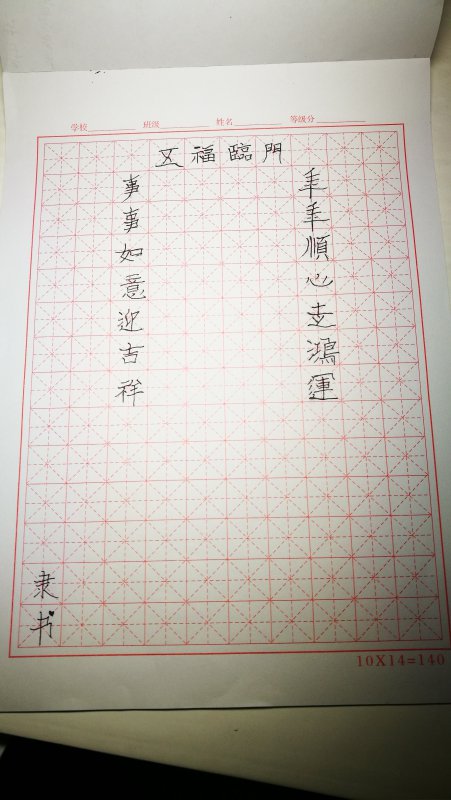 学校 班级 姓名 等级分
五福臨門
年年順心走鴻運
事事如意迎吉祥
隶书
10X14=140